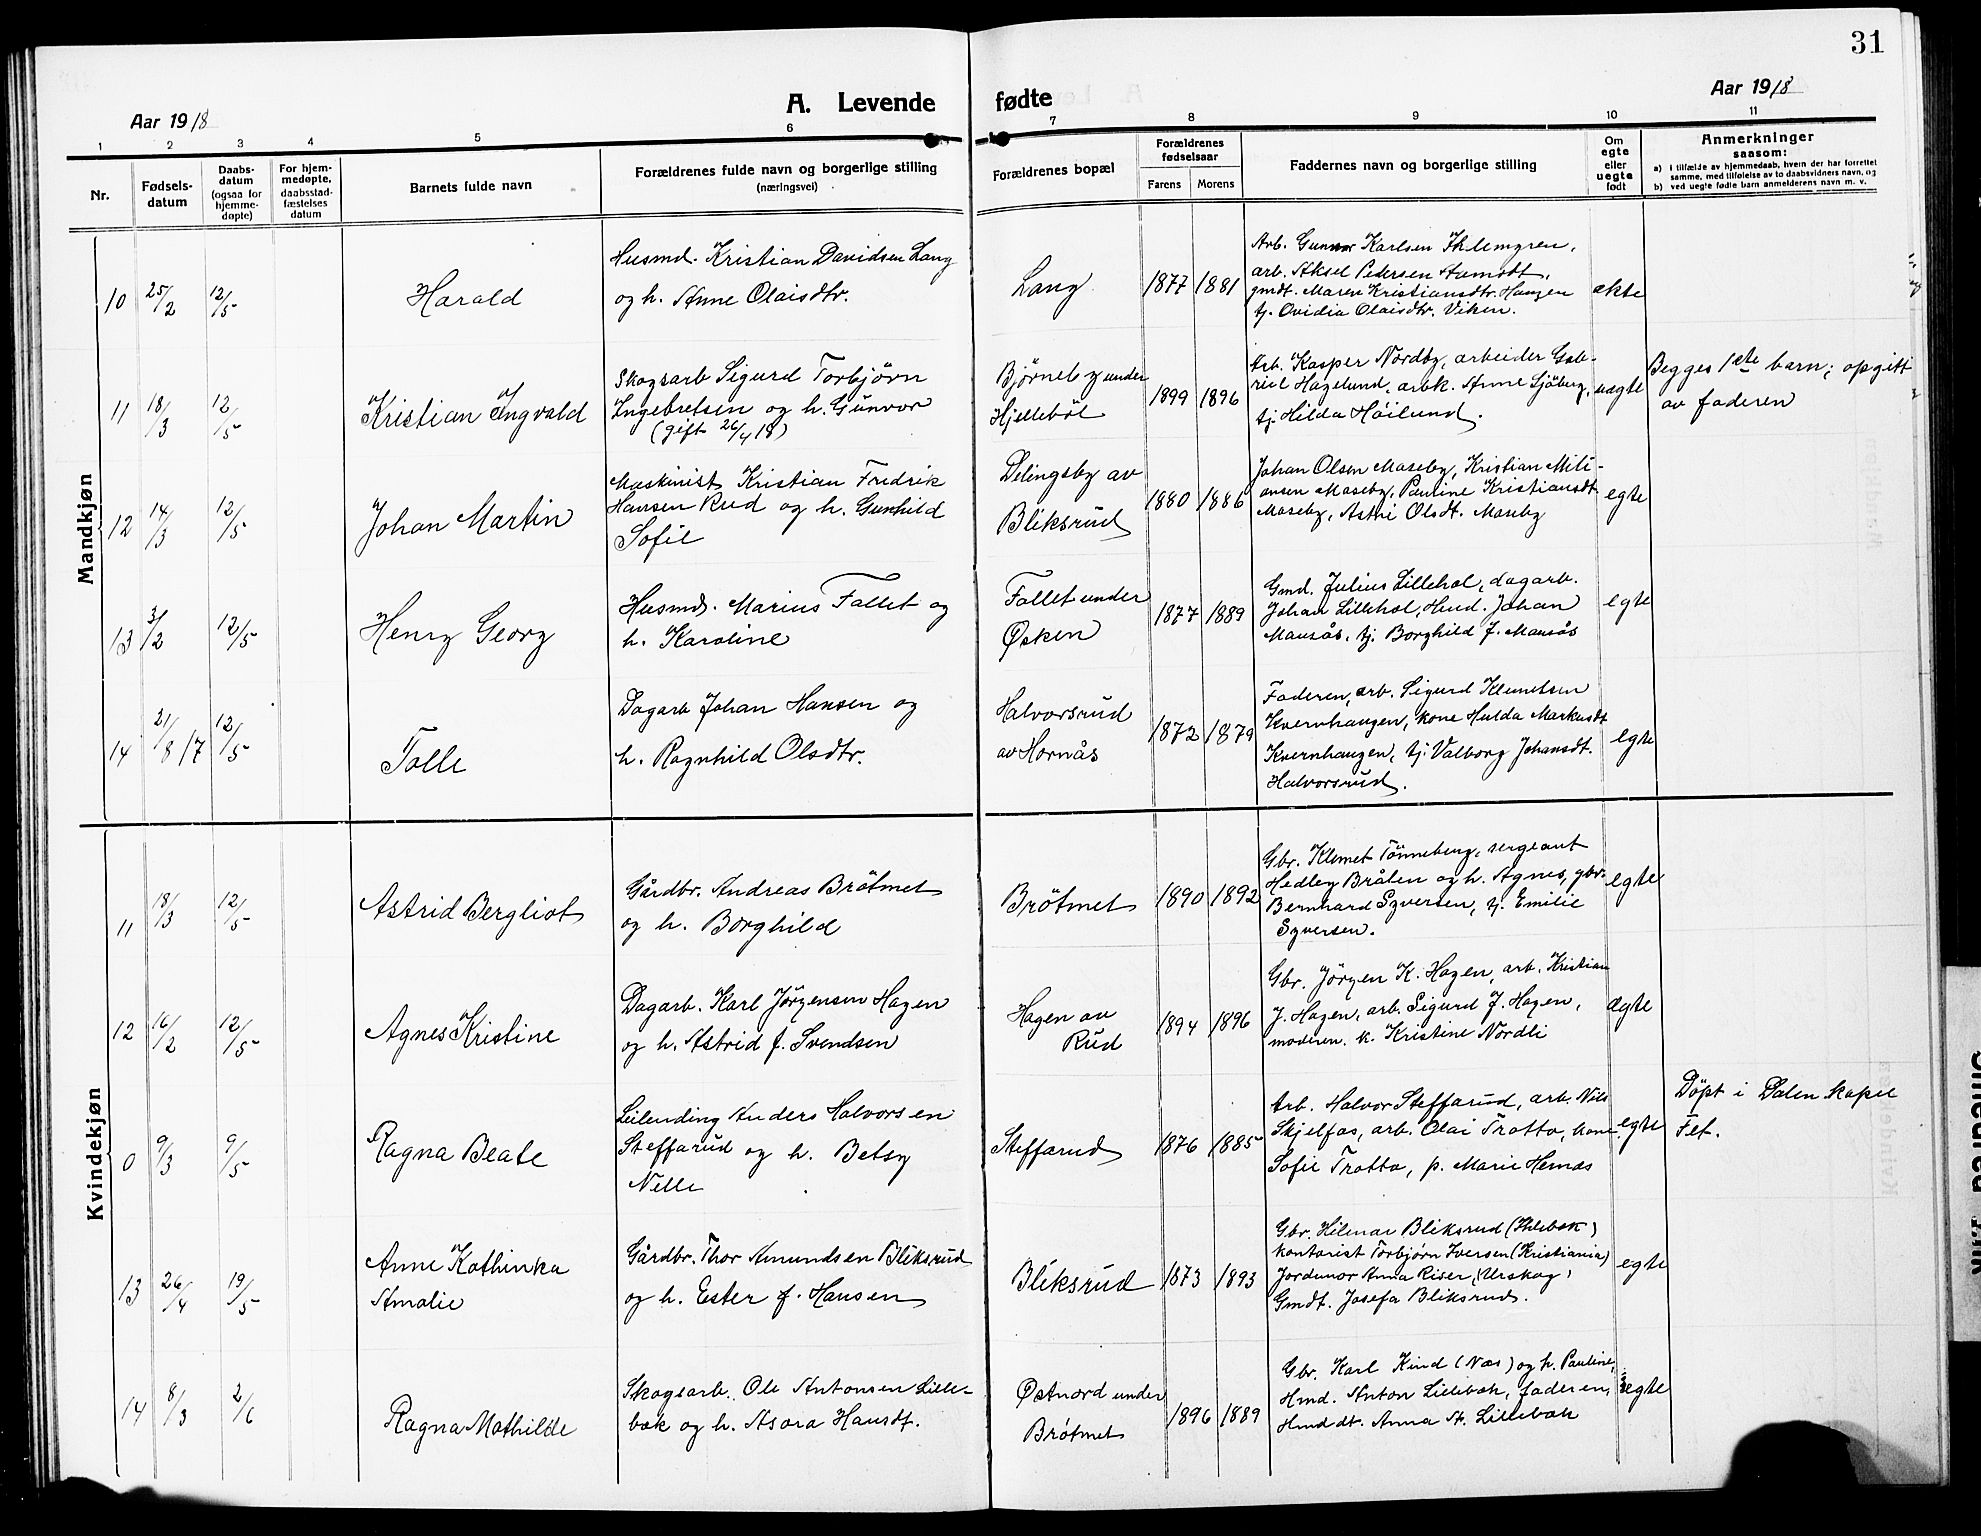 31
A. Levende fødte
Aar 1918
Aar 1918
1 2 3 4 5 6 7 8 9 10 11
Nr.
Fødsels-
datum
Daabs-
datum
(ogsaa for
hjemme-
døpte)
For hjem-
medøpte,
daabsstad-
fæstelses
datum
Barnets fulde navn
Forældrenes fulde navn og borgerlige stilling
(næringsvei)
Forældrenes bopæl
Forældrenes
fødselsaar
Farens Morens
Faddernes navn og borgerlige stilling
Om
egte
eller
uegte
født
Anmerkninger
saasom:
a) i tilfælde av hjemmedaab, hvem der har forrettet
samme, med tilføielse av to daabsvidners navn, og
b) ved uegte fødte barn anmelderens navn m. v.
Mandkjøn
10 25/2 12/5
Harald
Husmd. Kristian Davidsen Lang
og h. Anne Olaisdtr.
Lang
1877 1881
Arb. Gunnar Karlsen
arb. Aksel Pedersen
gmdt. Maren Kristiansdtr. Haugen
tj. Ovidia Olaisdtr. Viken.
ekte
11 18/3 12/5
Kristian Ingvald
Skogsarb Sigurd Torbjørn
Ingebretsen og h. Gunvor
(gift 26/4 18)
Bjørneby under
Hjellebøl
1899 1896
Arb. Kasper Nordby, arbeider Gab-
riel Hagelund, arbk. Anne Sjöberg,
tj. Hilda Höilund.
uægte
Begges 1ste barn; opgitt
av faderen
12 14/3 12/5
Johan Martin
Maskinist Kristian Fredrik
Hansen Rud og h. Gunhild
Sofie
Delingsby av
Bliksrud
1880 1886
Johan Olsen Moseby, Kristian Mili-
ansen Moseby, Pauline Kristiansdt.
Moseby, Astri Olsdt. Moseby
egte
13 3/2 12/5
Henry Georg
Husmd. Marius Fallet og
h. Karoline
Fallet under
Østen
1877 1889
Gmd. Julius Lillehol, dagarb.
Johan Lillehol, Hmd. Johan
Mausås, tj. Borghild J. Mausås
egte
14 21/8 17 12/5
Tolle
Dagarb Johan Hansen og
h. Ragnhild Olsdtr.
Halvorsrud
av Hornås
1872 1879
Faderen, arb. Sigurd Klemetsen
Kvernhaugen, kone Hulda Markusdt
Kvernhaugen, tj. Valborg Johansdt.
Halvorsrud.
egte
Kvindekjøn
11 18/3 12/5
Astrid Bergliot
Gårdbr. Andreas Brötmet
og h. Borghild
Brötmet
1890 1892
Gbr. Klemet Tönneberg, sergeant
Hedley Bråten og h. Agnes, gbr.
Bernhard Syversen, tj. Emilie
Syversen.
egte
12 16/2 12/5
Agnes Kristine
Dagarb. Karl Jörgensen Hagen
og h. Astrid f. Svendsen
Hagen av
Rud
1894 1896
Gbr. Jörgen K. Hagen, arb. Kristian
J. Hagen, arb. Sigurd J. Hagen,
moderen. k. Kristine Nordli
ægte
0 9/3 9/5
Ragna Beate
Leilending Anders Halvorsen
Steffarud og h. Betsy
Nelle
Steffarud
1876 1885
Arb. Halvor Steffarud, arb. Nils
Skjelfos, arb. Olai Tratto, kone
Sofie Tratto, p. Marie Hemnes
egte
Döpt i Dalen kapel
Fet.
13 26/4 19/5
Anne Kathinka
Amalie
Gårdbr. Thor Amundsen Bliksrud
og h. Ester f. Hansen
Bliksrud
1873 1893
Gbr. Hilmar Bliksrud
kontorist Torbjørn Iversen (Kristiania)
Jordmor Anna Riser (Urskog)
Gmdt. Josefa Bliksrud.
egte
14 8/3 2/6
Ragna Mathilde
Skogsarb. Ole Antonsen Lille-
bak og h. Asora Hansdt.
Østnord under
Brötmet
1896 1889
Gbr. Karl Kind (Næs) og h. Pauline,
Hmd. Anton Lillebak, faderen,
Hmddt. Anna A. Lillebak
egte